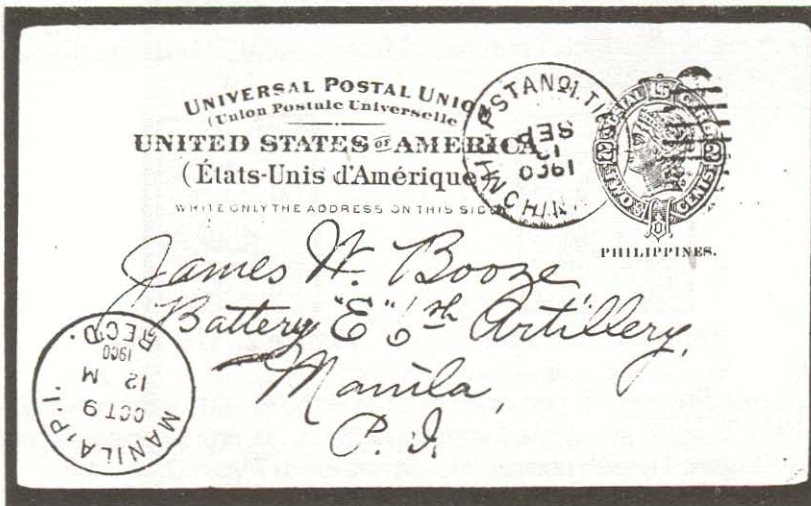 UNIVERSAL POSTAL UNION
(Union Postale Universelle
UNITED STATES OF AMERICA
(États-Unis d'Amérique
WRITE ONLY THE ADDRESS ON THIS SIDE
SEP
1900
TWO CENTS
PHILIPPINES.
James W. Booze
Battery "E" 6th Artillery,
Manila,
P. I.
MANILA, P. I.
OCT 9
12 M
1900
REC'D.